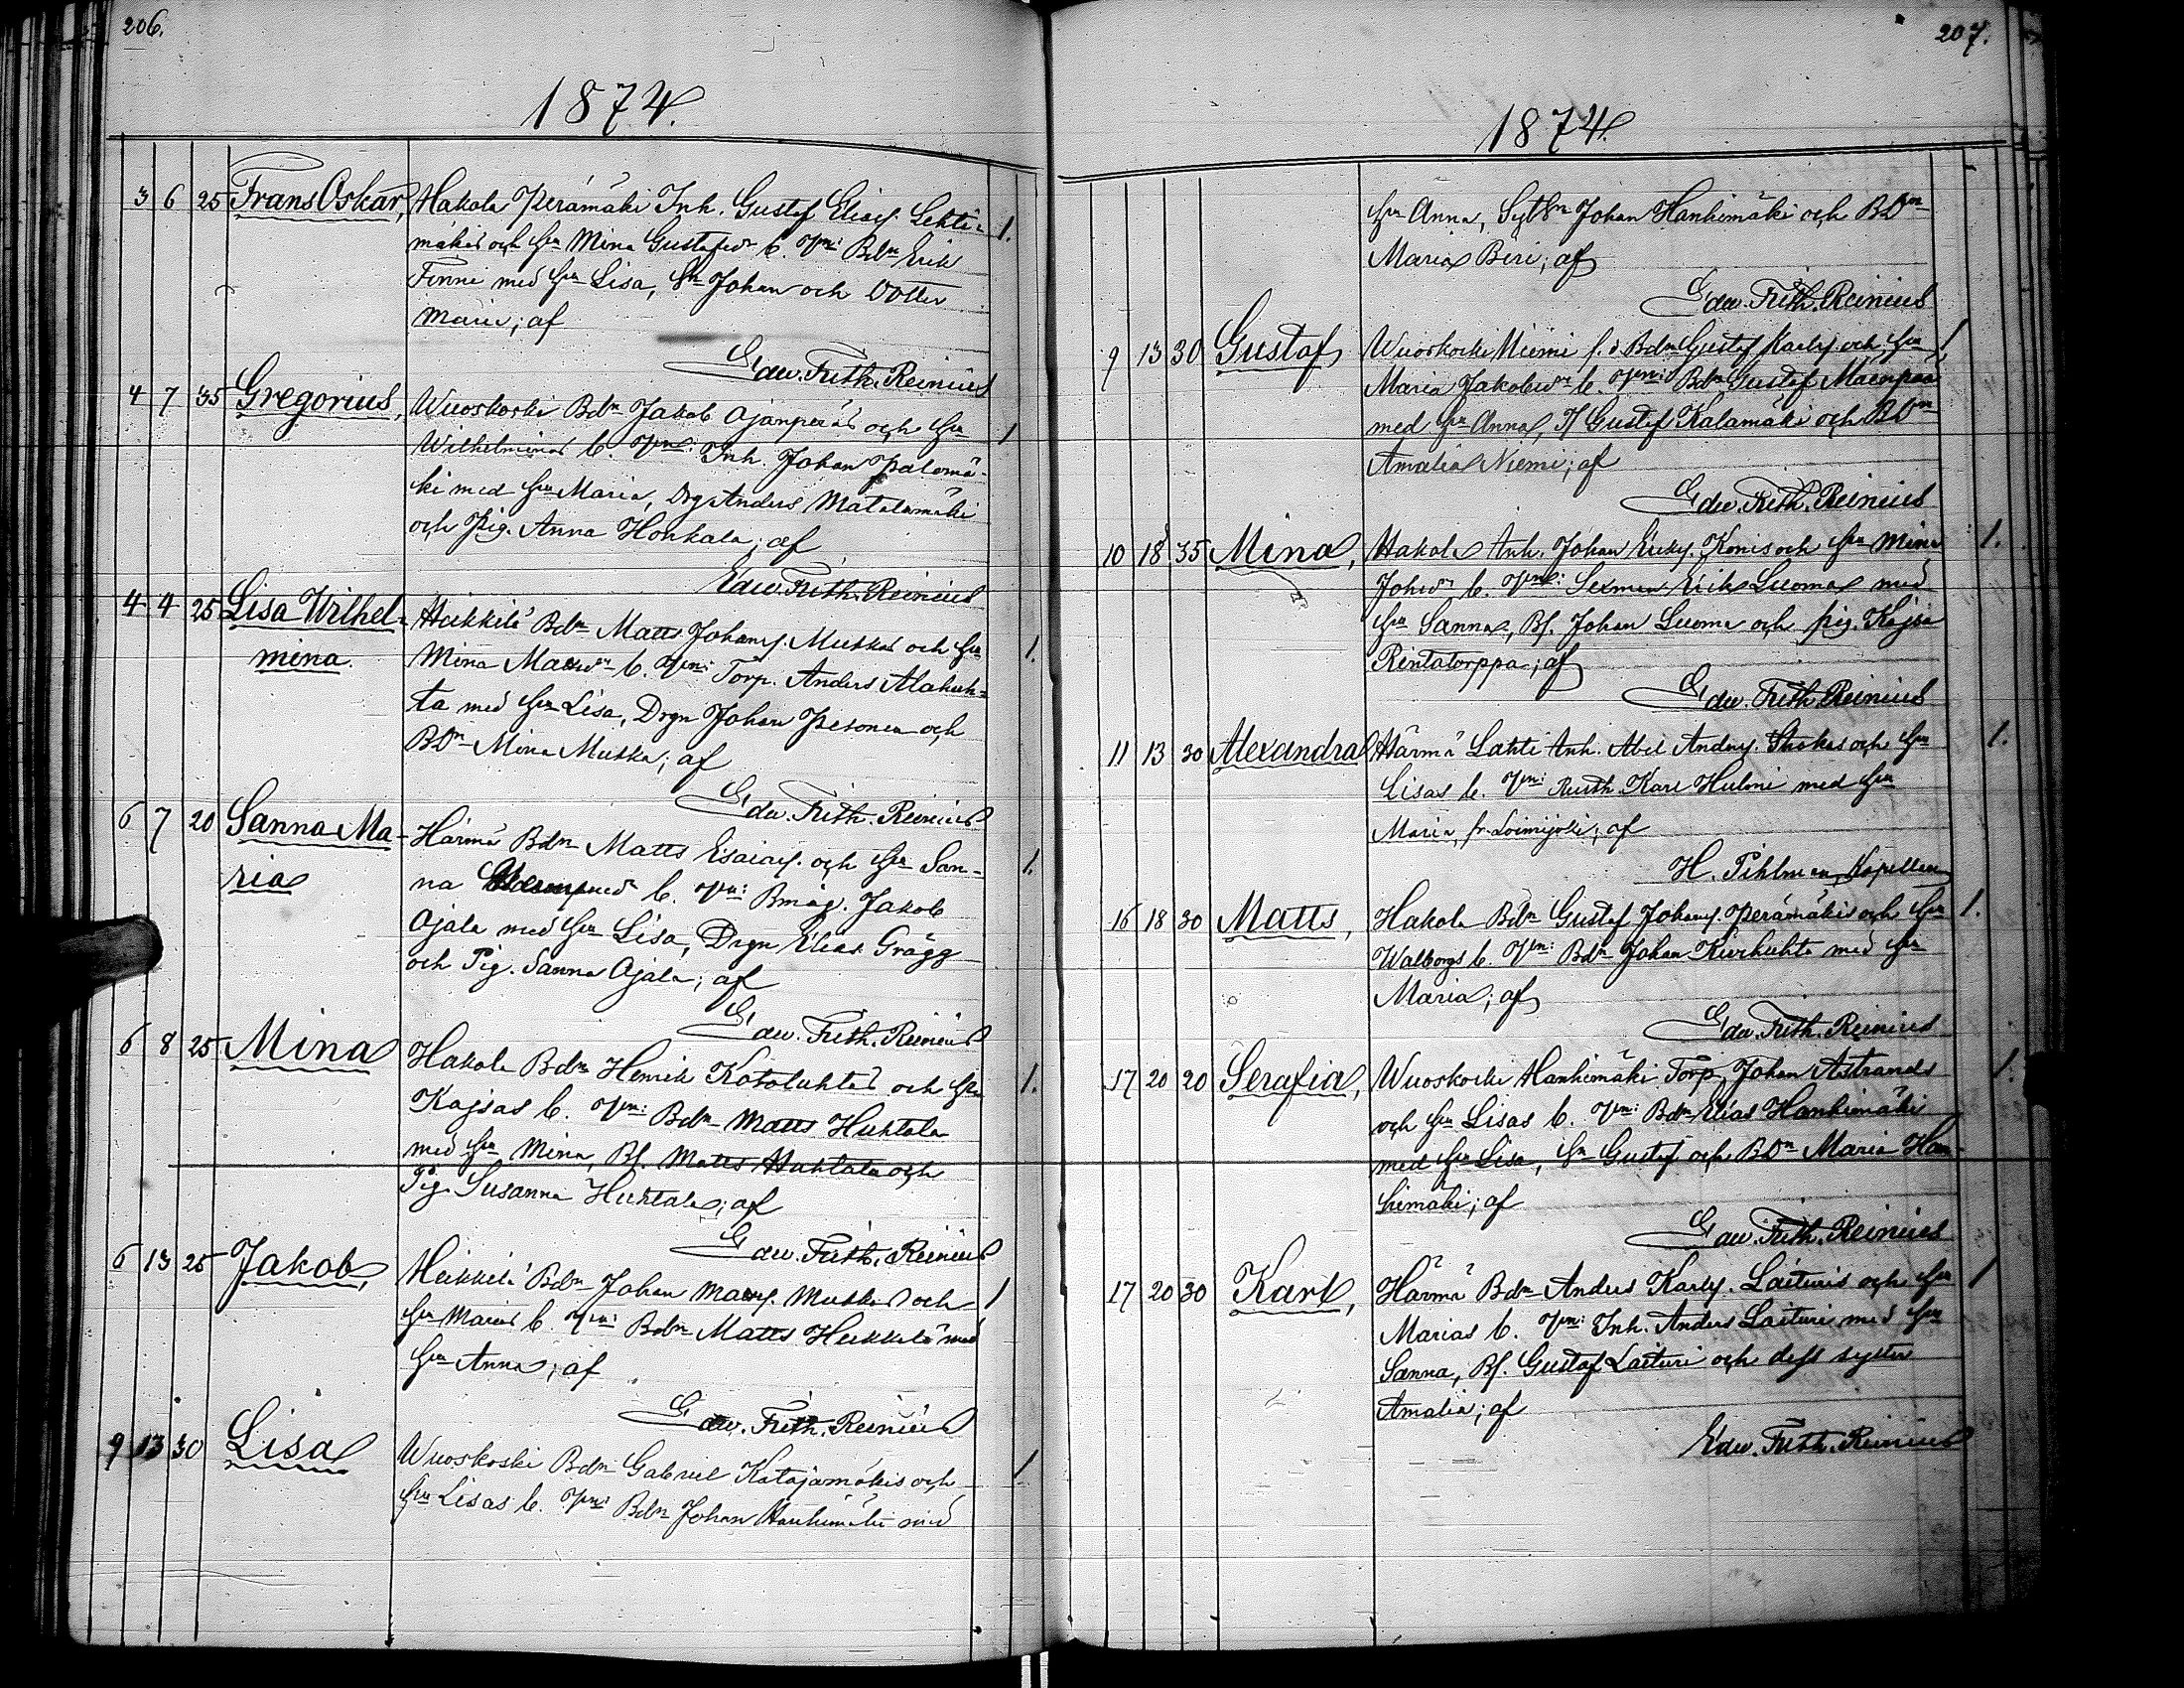 206.
1874.
3 6 25 Frans Oskar, Hakola Perämäki Inh. Gustaf Eliass. Lehti- 1.
mäkis och hu Mina Gustafsdr b. Vn: Bdn Erik
Finni med hu Lisa, Sn Johan och Dotter
Maria; af
Edw. Frith. Reinius
4 7 35 Gregorius, Wuoskoski Bdn Jakob Ojanperäs och hu 1
Wilhelminas b. Vne: Inh. Johan Palomä-
ki med hu Maria, Drg Anders Matalamäki
och Pig. Anna Honkala; af
Edw. Frith. Reinius
4 4 25 Lisa Wilhel- Heikkilä Bdn Matts Johans. Muskas och hu 1.
mina. Mina Mattsdr b. Vn: Torp. Anders Alahuh-
ta med hu Lisa, Drgn Johan Pesonen och
BDn Mina Muska; af
Edw. Frith. Reinius
6 7 20 Sanna Ma- Härmä Bdn Matts Esaias. och hu San- 1.
ria na b. Vn: Bmåg. Jakob
Ojala med hu Lisa, Drgn Elias Grägg
och Pig. Sanna Ojala; af
Edw. Frith. Reinius
6 8 25 Mina Hakola Bdn Henrik Kotoluhtas och hu 1.
Kajsas b. Vn: Bdn Matts Huhtala
med hu Mina, Bs. Matts Huhtala och
Pig. Susanna Huhtala; af
Edw. Frith. Reinius
6 13 25 Jakob, Heikkilä Bdn Johan Matts. Muskas och 1
hu Marias b. Vn: Bdn Matts Heikkilä med
hu Anna; af
Edw. Frith. Reinius
9 13 30 Lisa Wuoskoski Bdn Gabriel Katajamäkis och 1
hu Lisas b. Vn: Bdn Johan Hanhimäki med
207.
1874.
hu Anna, Sytn Johan Hanhimäki och BDn
Maria Beri; af
Edw. Frith. Reinius
9 13 30 Gustaf Wuoskoski Niemi f. d Bdn Gustaf Karls. och hu 1
Maria Jakobsdr b. Vne: Bdn Gustaf Mäenpää
med hu Anna, Gustaf Kalamäki och BDn
Amalia Niemi; af
Edw. Frith. Reinius
10 18 35 Mina, Hakola Inh. Johan Ericks. Konis och hu Mina 1.
Johsdr b. Vne: Sexman Erik Luoma med
hu Sanna, Bs. Johan Luoma och pig. Kajsa
Rintatorppa; af
Edw. Frith. Reinius
11 13 30 Alexandra Härmä Lahti Inh. Abel Anders. Skokas och hu 1.
Lisas b. Vn: Karl Hulmi med hu
Maria, fr. Loimijoki; af
H. Pihlman, Kapellan
16 18 30 Matts, Hakola Bdn Gustaf Johans. Perämäkis och hu 1.
Walborgs b. Vn: Bdn Johan Kiverhuhta med hu
Maria; af
Edw. Frith. Reinius
17 20 20 Serafia, Wuoskoski Hanhimäki Torp. Johan Åstrands 1.
och hu Lisas b. Vn: Bdn Elias Hanhimäki
med hu Lisa, Sn Gustaf och BDn Maria Han-
himäki; af
Edw. Frith. Reinius
17 20 30 Karl, Härmä Bdn Anders Karls. Laituris och hu 1
Marias b. Vn: Inh. Anders Laituri med hu
Sanna, Bs. Gustaf Laituri och dess syster
Amalia; af
Edw. Frith. Reinius